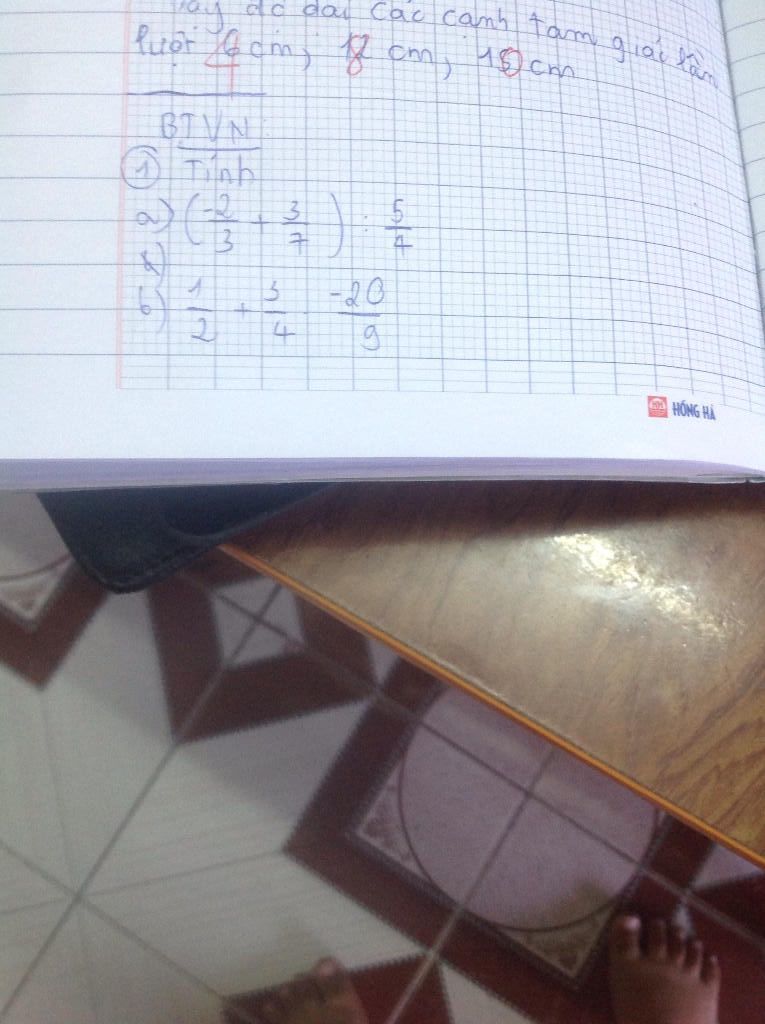 độ dài các cạnh tam giác lần
lượt 4 cm; 8 cm; 10 cm
BTVN:
① Tính
a) (-2/3 + 3/7) : 5/4
b) 1/2 + 3/4 -20/9
HỒNG HÀ